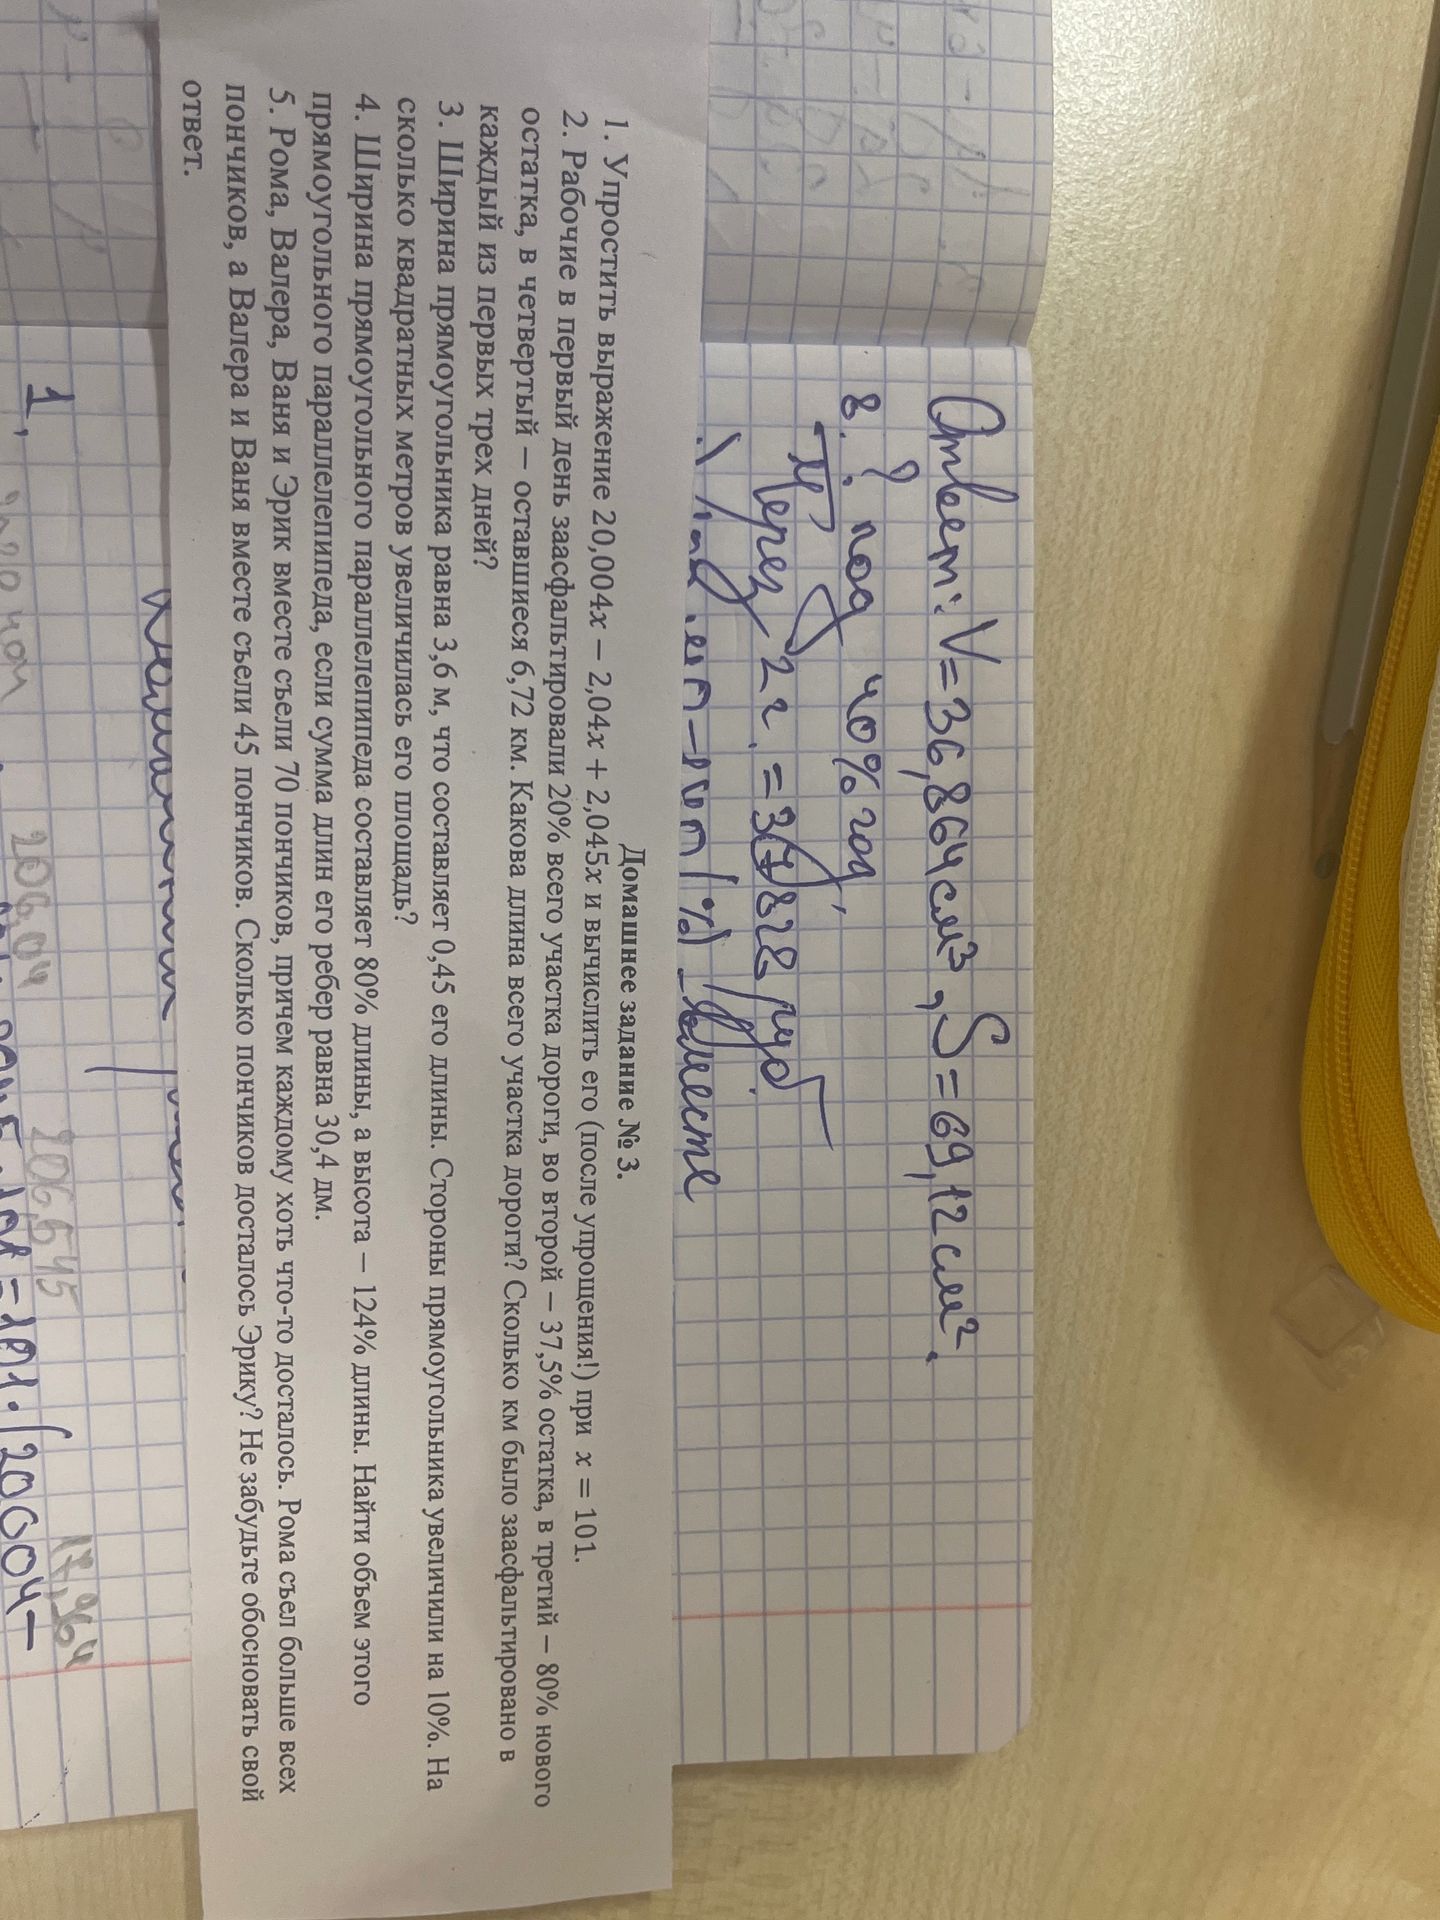 Ответ: V=36,864см³, S=69,12см².
8.
? под 40% год,
Через 2 г. = 37828 руб
вместе
Домашнее задание № 3.
1. Упростить выражение 20,004x – 2,04x + 2,045x и вычислить его (после упрощения!) при x = 101.
2. Рабочие в первый день заасфальтировали 20% всего участка дороги, во второй – 37,5% остатка, в третий – 80% нового
остатка, в четвертый – оставшиеся 6,72 км. Какова длина всего участка дороги? Сколько км было заасфальтировано в
каждый из первых трех дней?
3. Ширина прямоугольника равна 3,6 м, что составляет 0,45 его длины. Стороны прямоугольника увеличили на 10%. На
сколько квадратных метров увеличилась его площадь?
4. Ширина прямоугольного параллелепипеда составляет 80% длины, а высота – 124% длины. Найти объем этого
прямоугольного параллелепипеда, если сумма длин его ребер равна 30,4 дм.
5. Рома, Валера, Ваня и Эрик вместе съели 70 пончиков, причем каждому хоть что-то досталось. Рома съел больше всех
пончиков, а Валера и Ваня вместе съели 45 пончиков. Сколько пончиков досталось Эрику? Не забудьте обосновать свой
ответ.
1,
206,04
206,545
17,964